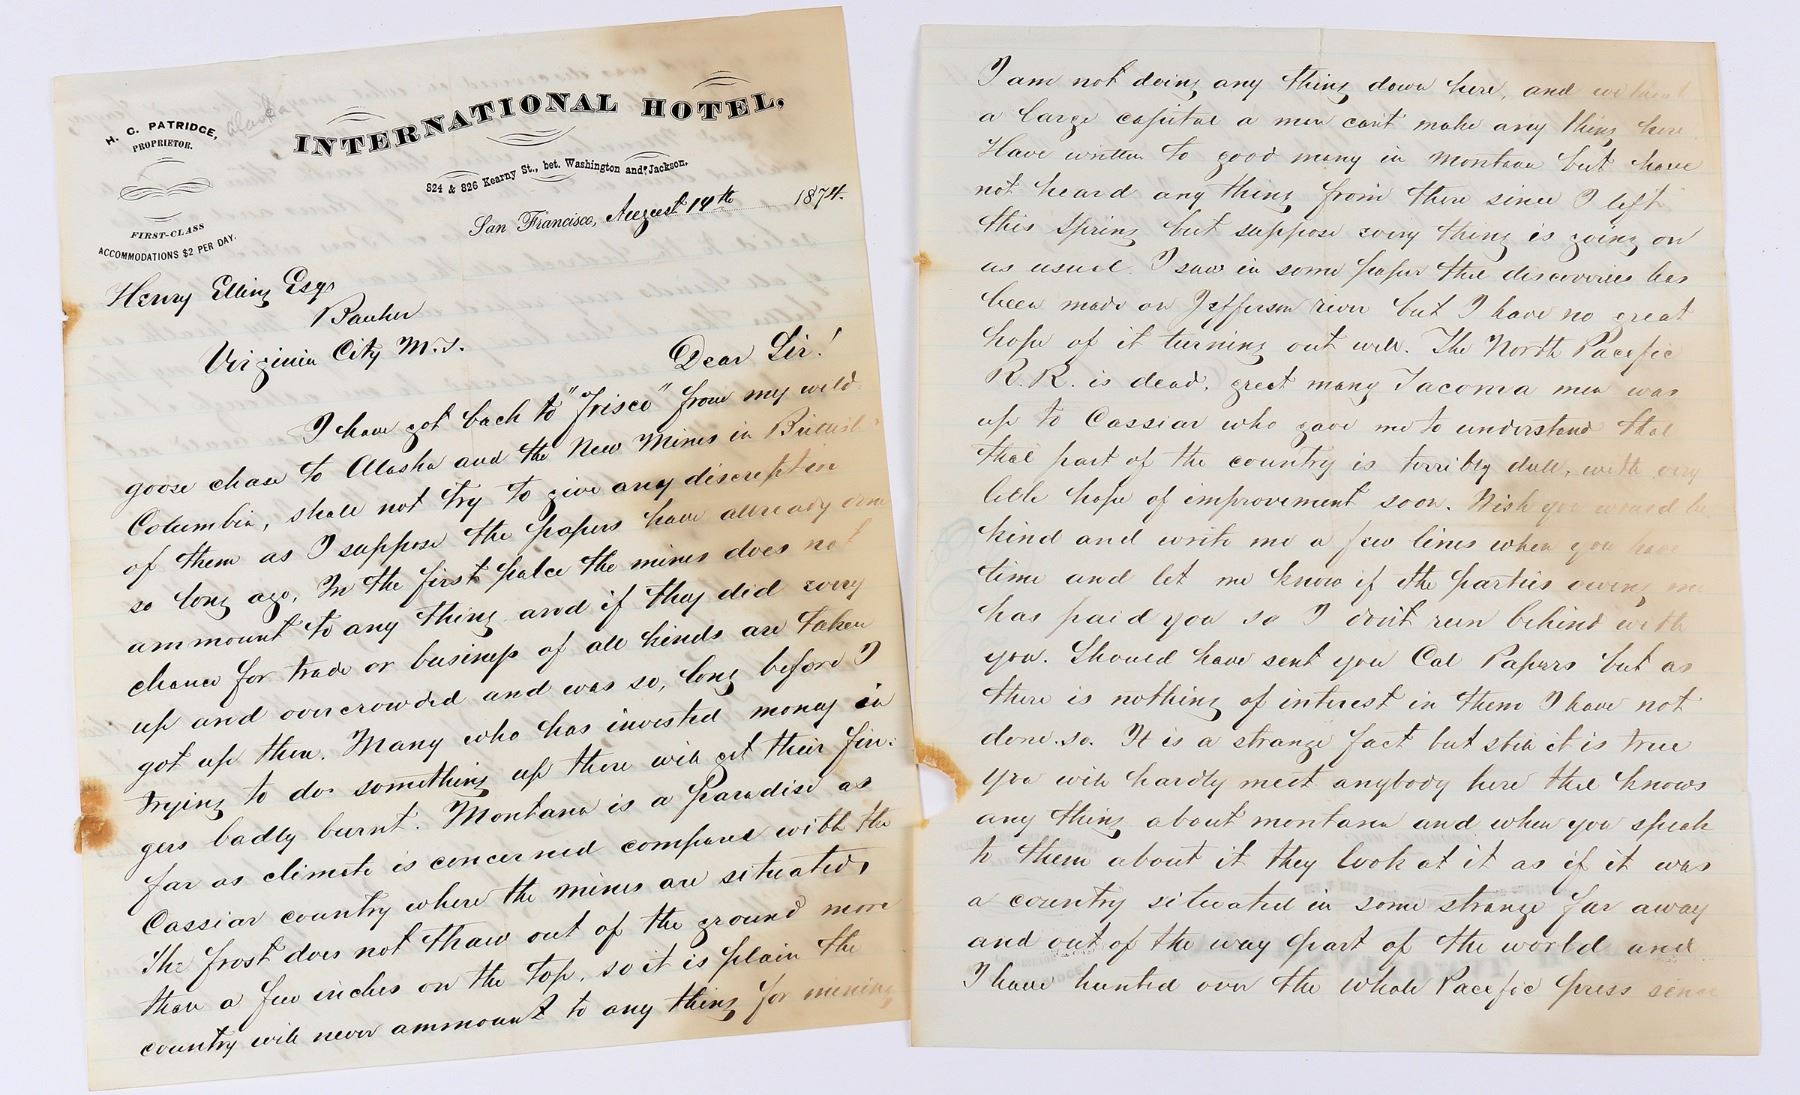 H. C. PATRIDGE,
PROPRIETOR.
Alaska
FIRST-CLASS
ACCOMMODATIONS $2 PER DAY.
INTERNATIONAL HOTEL,
824 & 826 Kearny St., bet. Washington and Jackson,
San Francisco, August 14th 1874.
Henry Elling Esqr
Banker
Virginia City M.T.
Dear Sir!
I have got back to "Frisco" from my wild
goose chase to Alaska and the New Mines in British
Columbia, shall not try to give any discreption
of them as I suppose the papers have allready done
so long ago. In the first palce the mines does not
ammount to any thing and if they did every
chance for trade or business of all kinds are taken
up and overcrowded and was so, long before I
got up then. Many who has invested money in
trying to do something up there will get their fin-
gers badly burnt. Montana is a Paradise as
far as climate is concerned compared with the
Cassiar country where the mines are situated,
The frost does not thaw out of the ground more
than a few inches on the top, so it is plain the
country will never ammount to any thing for mining
I am not doing any thing down here, and without
a large capital a man cant make any thing here.
Have written to good many in Montana but have
not heard any thing from there since I left
this spring but suppose every thing is going on
as usual. I saw in some paper that discoveries has
been made on Jefferson river but I have no great
hope of it turning out well. The North Pacific
R.R. is dead, great many Tacoma men was
up to Cassiar who gave me to understand that
that part of the country is terribly dull, with very
little hope of improvement soon. Wish you would be
kind and write me a few lines when you have
time and let me know if the parties owing me
has paid you so I don't run behind with
you. Should have sent you Cal Papers but as
there is nothing of interest in them I have not
done so. It is a strange fact but still it is true
you will hardly meet anybody here that knows
any thing about montana and when you speak
to them about it they look at it as if it was
a country situated in some strange far away
and out of the way part of the world and
I have hunted over the whole Pacific press since